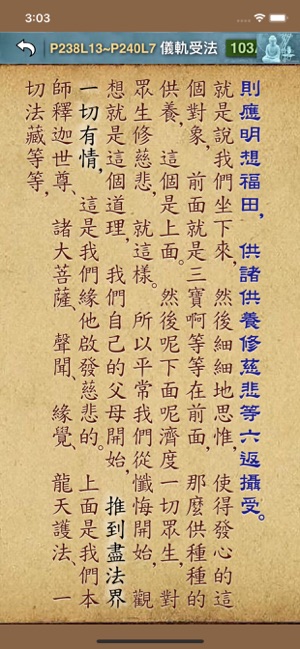 3:03
P238L13~P240L7 儀軌受法 103A
則應明想福田,供諸供養修慈悲等六返攝受。
就是說我們坐下來,然後細細地思惟,使得發心的這
個對象,前面就是三寶啊等等在前面,那麼供種種的
供養,這個是上面。然後呢下面呢濟度一切眾生,對
眾生修慈悲,就這樣。所以平常我們從懺悔開始,觀
想就是這個道理,我們自己的父母開始,推到盡法界
一切有情,這是我們緣他啟發慈悲的。上面是我們本
師釋迦世尊、諸大菩薩、聲聞、緣覺、龍天護法、一
切法藏等等,